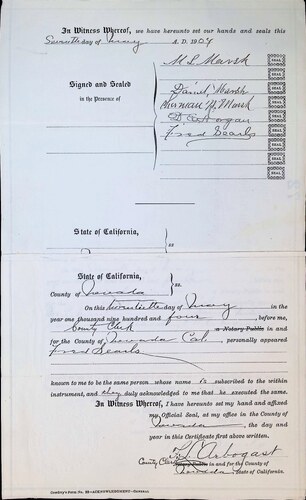 In Witness Whereof, we have hereunto set our hands and seals this
Seventh day of May A. D. 1904
M. L. Marsh SEAL
SEAL
Signed and Sealed
in the Presence of
Daniel Marsh SEAL
Sherman W. Marsh SEAL
D. E. Morgan SEAL
Fred Searls SEAL
SEAL
SEAL
SEAL
State of California,
ss
State of California,
County of Nevada ss
On this twentieth day of May in the
year one thousand nine hundred and four, before me,
County Clerk a Notary Public in and
for the County of Nevada Cal., personally appeared
Fred Searls
known to me to be the same person whose name is subscribed to the within
instrument, and they duly acknowledged to me that he executed the same.
In Witness Whereof, I have hereunto set my hand and affixed
my Official Seal, at my office in the County of
Nevada, the day and
year in this Certificate first above written.
F. L. Arbogast
County Clerk Notary Public in and for the County of
Nevada State of California.